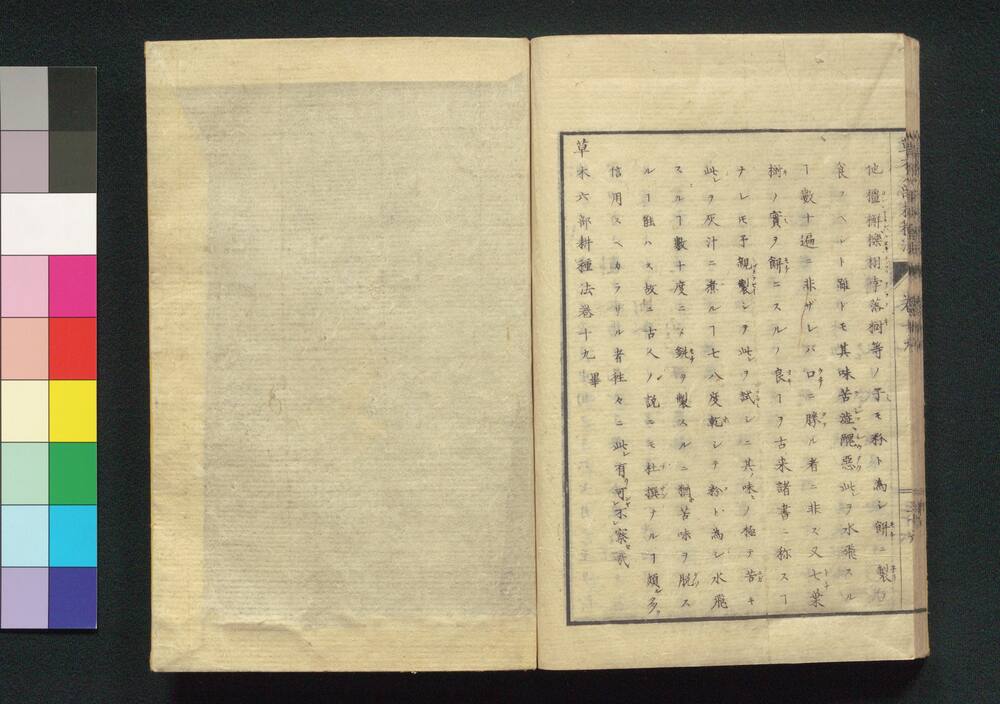 他櫧槲櫟栩李落椡等ノ子モ粉ト為シ餅ニ製
食フヘシト雖トモ其味苦澁醜惡此ヲ水飛スル
ヿ數十遍ニ非ザレバ口ニ勝ル者ニ非ス又七葉
樹ノ實ヲ餅ニスルノ良ヿヲ古来諸書ニ称スヿ
ナレモ予親製シヲ此ヲ試シニ其味ノ極テ苦キ
此ヲ灰汁ニ煮ルヿ七八度乾シテ粉ト為シ水飛
スルヿ數十度ニメ餅ヲ製スルニ猶苦味ヲ脱ス
ルヿ能ハス故ニ古人ノ説ニモ杜撰ナルヿ頗多
信用スベカラサル者往々ニ此有可不察哉
草木六部耕種法巻十九畢